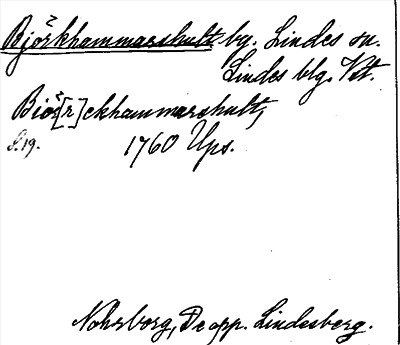 Björkhammarshult, by. Lindes sn.
Lindes blg. Vst.
Biö[r]ckhammarshult,
S. 19. 1760 Ups.
Nohrborg, De opp. Lindesberg.